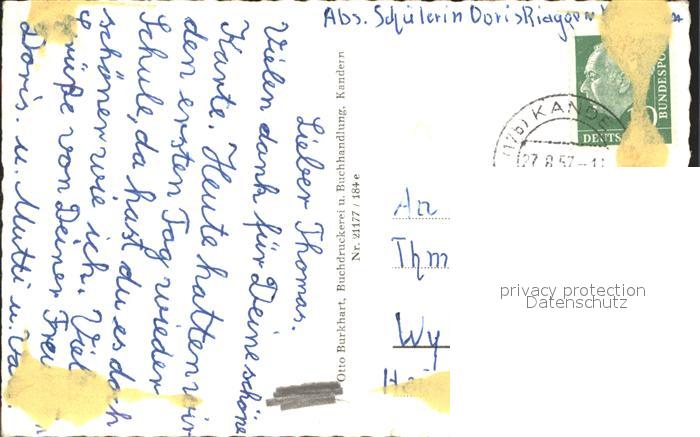 Abs. Schülerin Doris
Lieber Thomas.
Vielen dank für Deine schöne
Karte. Heute hatten wir
den ersten Tag wieder
Schule, da hast du es doch
schöner wie ich. Viel
Grüße von Deiner Freu
Doris. u. Mutti u. Va
Otto Burkhart, Buchdruckerei u. Buchhandlung, Kandern
Nr. 21177 / 184 e
(17b) KANDE
27.8.57-1
DEUTS
BUNDESPO
An
Thm
Wy
privacy protection
Datenschutz